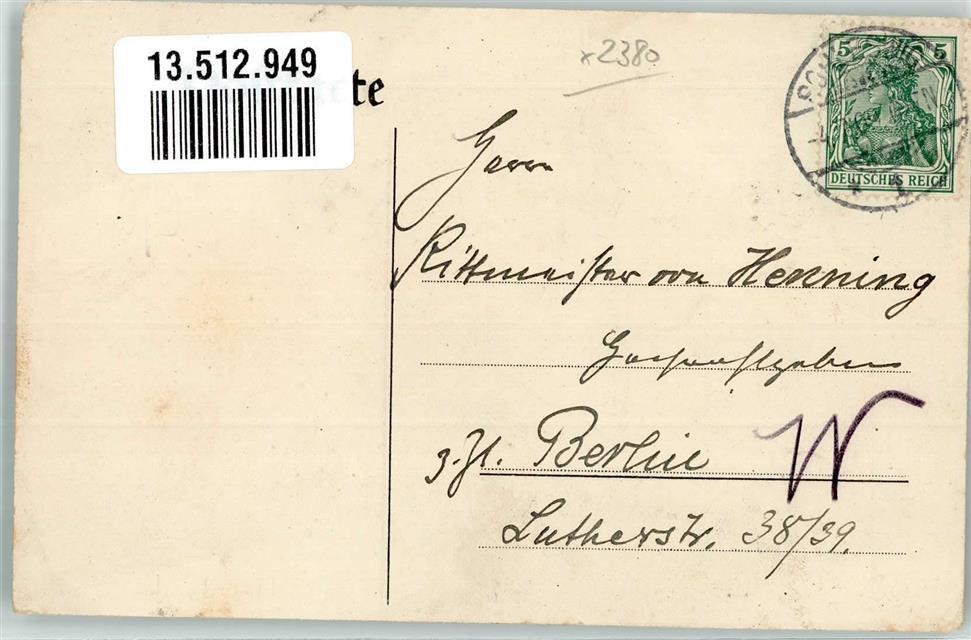 13.512.949
te
x2380
5 5
DEUTSCHES REICH
Herrn
Rittmeister von Henning
Hochwohlgeboren
z. Zt. Berlin W
Lutherstr. 38/39.